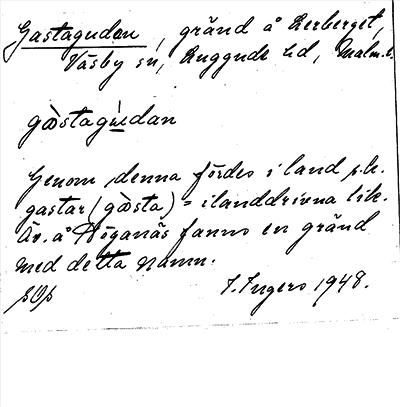 Gastagudan, gränd å Lerberget,
Väsby sn, Luggude hd, Malm. l.
gàstagúedan
Genom denna fördes i land s.k.
gastar (gàsta) = ilanddrivna lik.
Äv. å Höganäs fanns en gränd
med detta namn.
I. Ingers 1948.